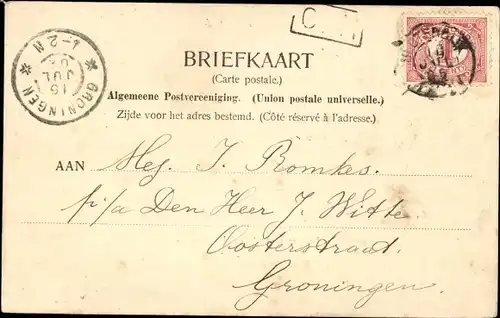 BRIEFKAART
(Carte postale.)
Algemeene Postvereeniging. (Union postale universelle.)
Zijde voor het adres bestemd. (Côté réservé à l'adresse.)
AAN Mej. J. Bomkes.
p/a Den Heer J. Witte
Oosterstraat.
Groningen.
GRONINGEN
1-2N
15
JUL